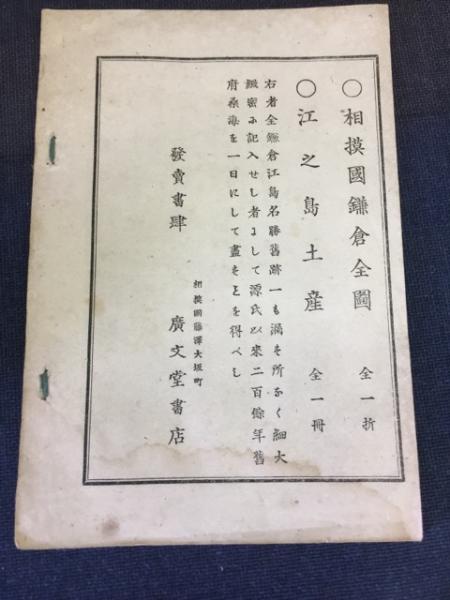 ○相摸國鎌倉全圖　全一折
○江之島土産　全一冊
右者全鎌倉江島名勝舊跡一も漏す所なく細大
緻密に記入せし者にして源氏以來二百餘年舊
府桑海を一目にして盡すとを得べし
相摸國藤澤大坂町
發賣書肆　廣文堂書店